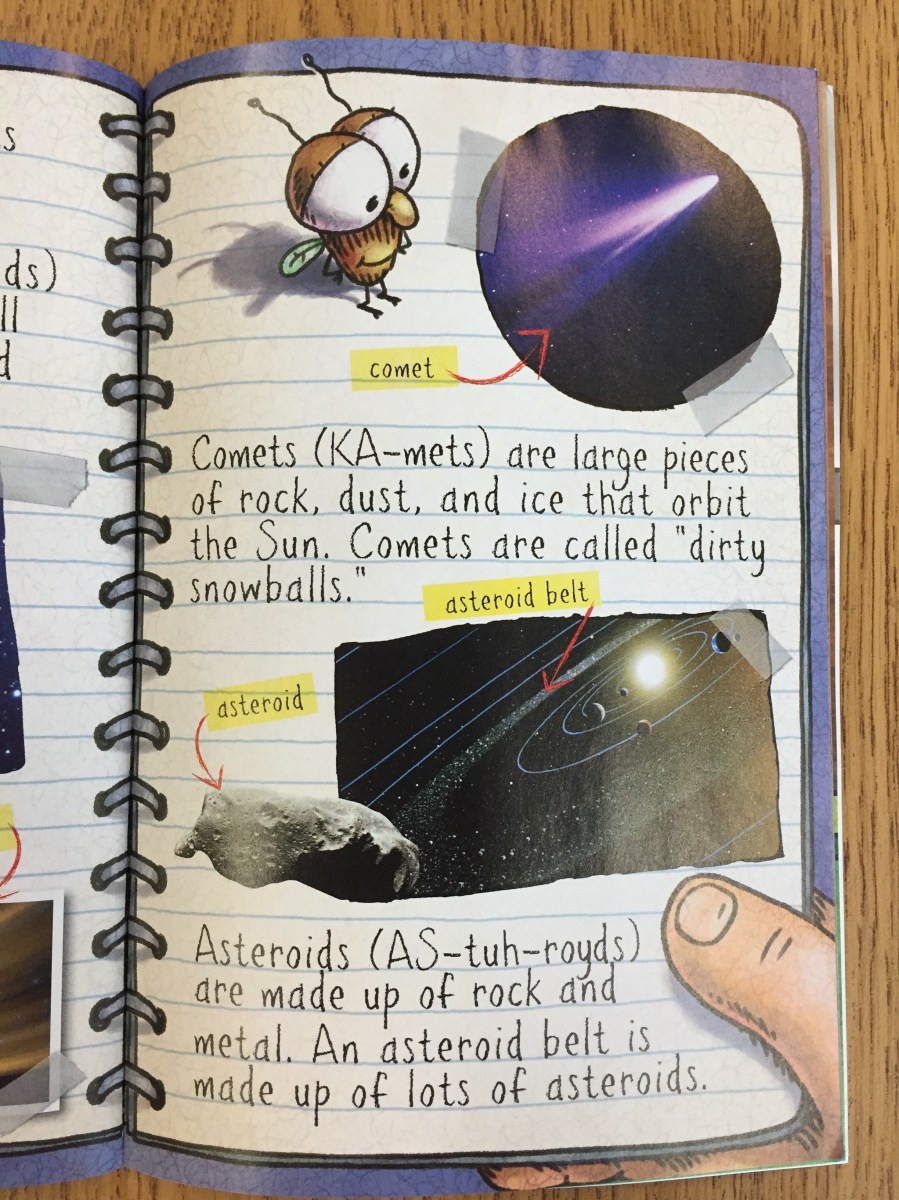 s
ds)
ll
d
comet
Comets (KA-mets) are large pieces
of rock, dust, and ice that orbit
the Sun. Comets are called "dirty
snowballs."
asteroid belt
asteroid
Asteroids (AS-tuh-royds)
are made up of rock and
metal. An asteroid belt is
made up of lots of asteroids.